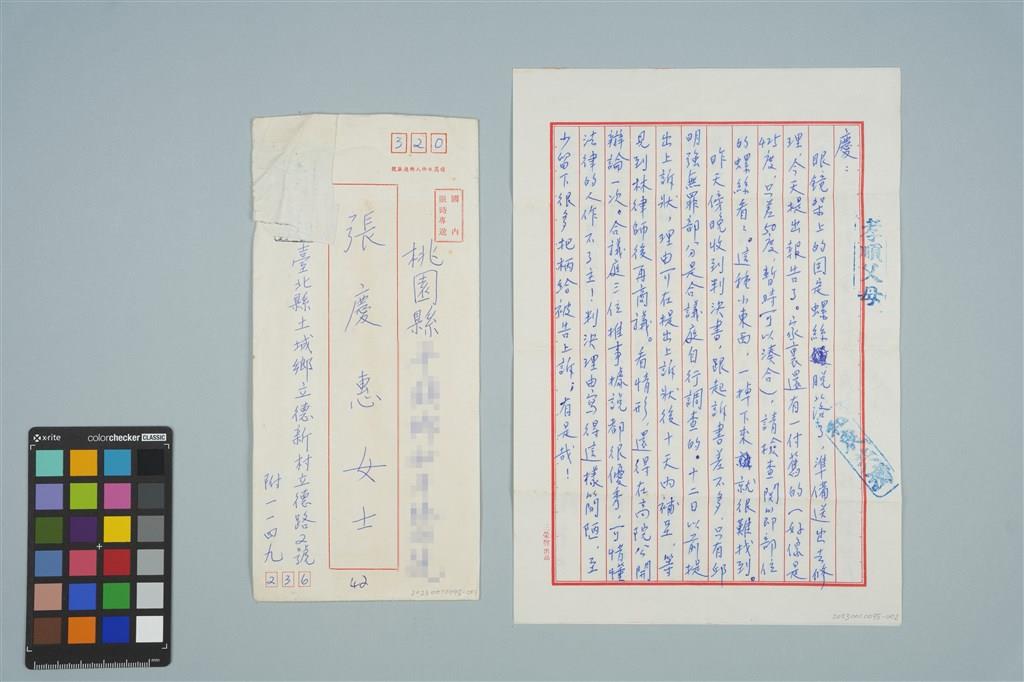 慶：
眼鏡架上的固定螺絲脫落了，準備送出去修
理，今天提出報告了。家裏還有一付舊的（好像是
425度，只差50度，暫時可以湊合），請檢查関節部位
的螺絲看看。這種小東西，一掉下來就很難找到。
昨天傍晚收到判決書，跟起訴書差不多，只有邱
明強無罪部分是合議庭自行調查的。十二日以前提
出上訴狀，理由可在提出上訴狀後十天內補呈，等
見到林律師後再商議。看情形，還得在高院公開
辯論一次。合議庭三位推事據說都很優秀，可惜懂
法律的人作不了主！判決理由寫得這樣簡陋，至
少留下很多把柄給被告上訴，有是哉！
孝順父母
榮譽出品
2023001095-002
320
國內
限時專送
桃園縣
張慶惠女士
42
臺北縣土城鄉立德新村立德路2號
附一一四九
236
x-rite
colorchecker CLASSIC
mm